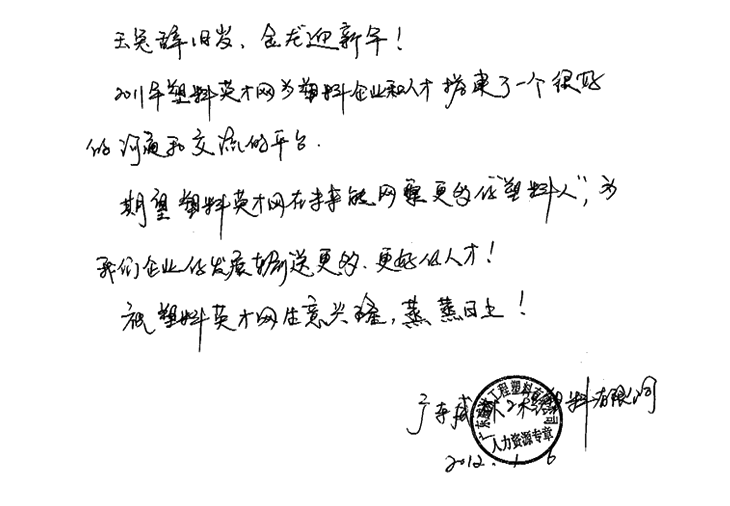 玉兔辞旧岁、金龙迎新年!
2011年塑料英才网为塑料企业和人才搭建了一个很好
的沟通和交流的平台.
期望塑料英才网在未来能网罗更多的“塑料人”,为
我们企业的发展输送更多、更好的人才!
祝塑料英才网生意兴隆,蒸蒸日上!
广东威林工程塑料有限公司
人力资源专章
2012.1.6